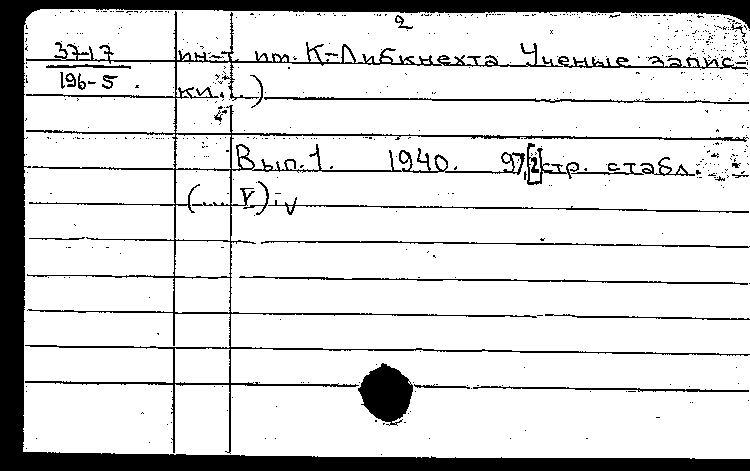 2
37-17
196-5
ин-т им. К-Либкнехта. Ученые запис-
ки...)
Вып.1. 1940. 97,[2]стр. с табл.
(... V) iv